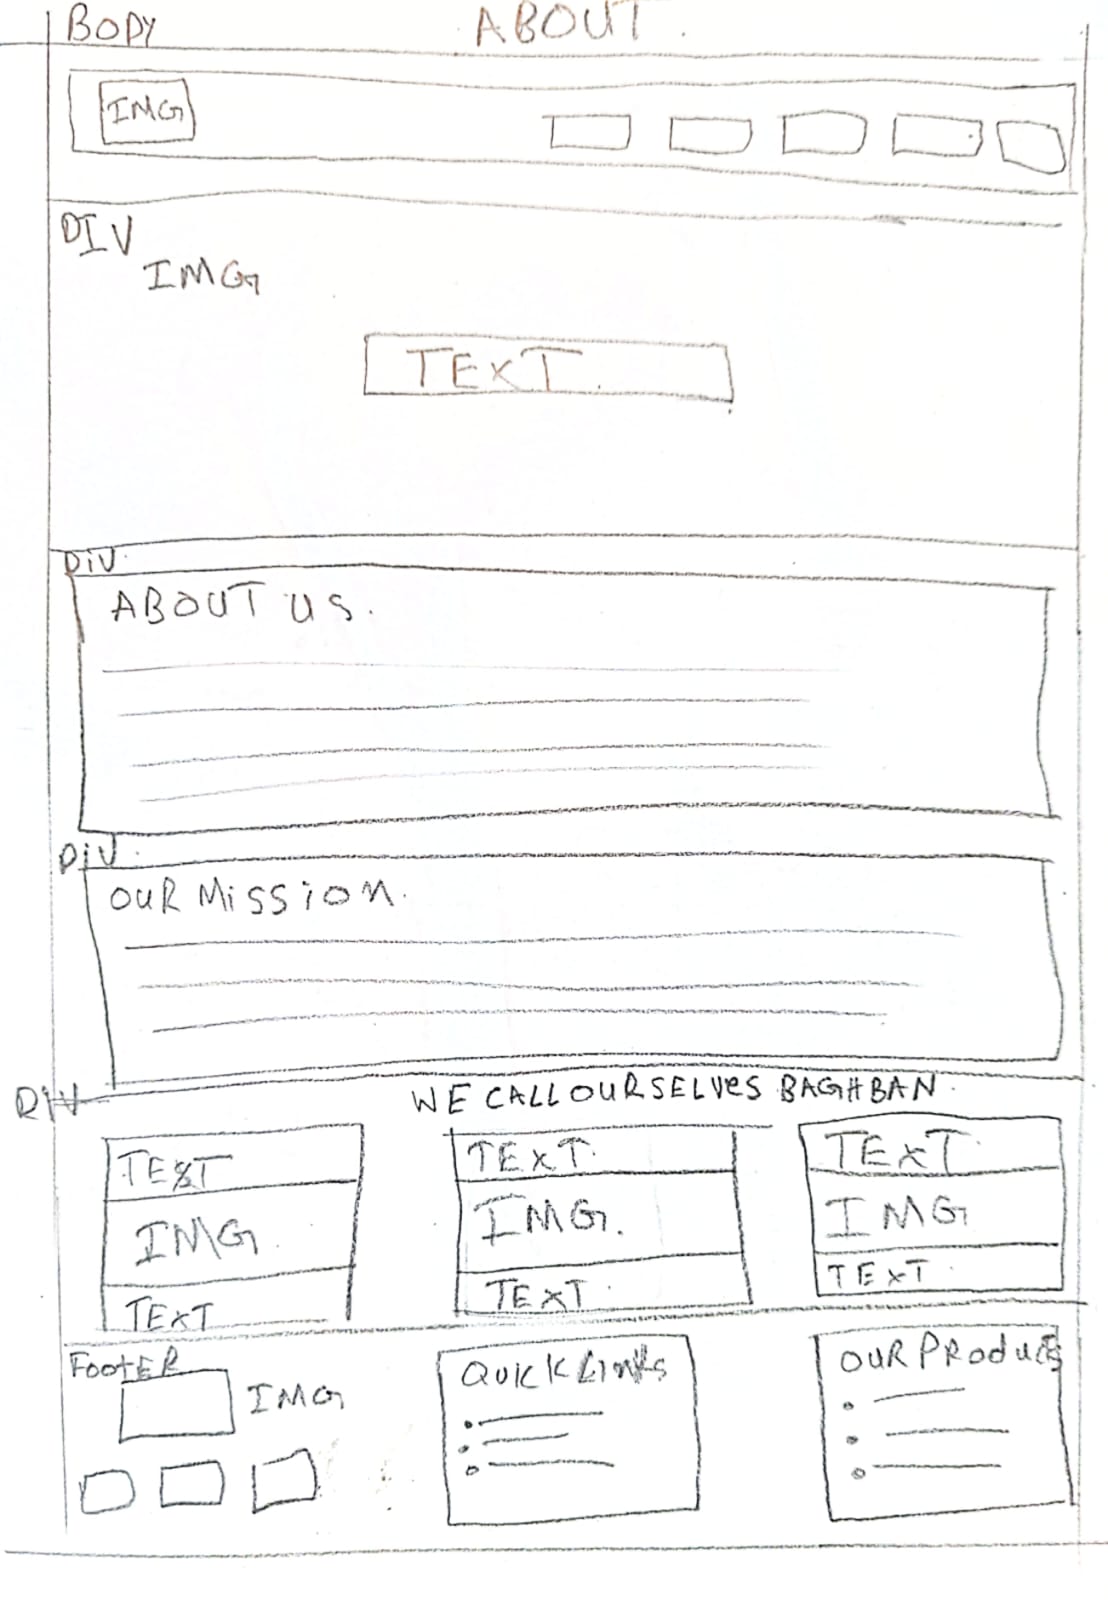 BODY
ABOUT.
IMG
DIV
IMG
TEXT.
DiV.
ABOUT US.
DiV.
OUR MiSSiON.
DiV
WE CALL OURSELVES BAGHBAN.
TEXT TEXT. TEXT
IMG. IMG. IMG
TEXT TEXT. TEXT
FOOtER
IMG
QUICK LINKs
OUR PRODUCTS